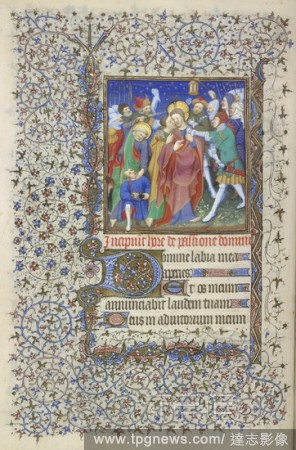 Incipiunt hore de passione domini
Domine labia mea
aperies
Et os meum
annunciabit laudem tuam
eus in adiutorium meum
www.tpgnews.com/ 達志影像